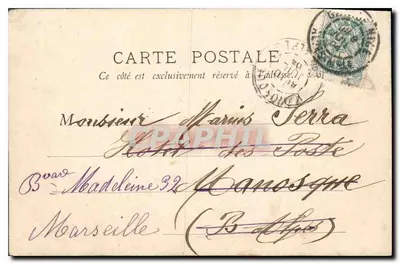 CARTE POSTALE
Ce côté est exclusivement réservé à l'adresse.
Monsieur Marius Serra
Hotel des Poste
Bvard Madeleine 92 Manosque
Marseille (B Alpes)